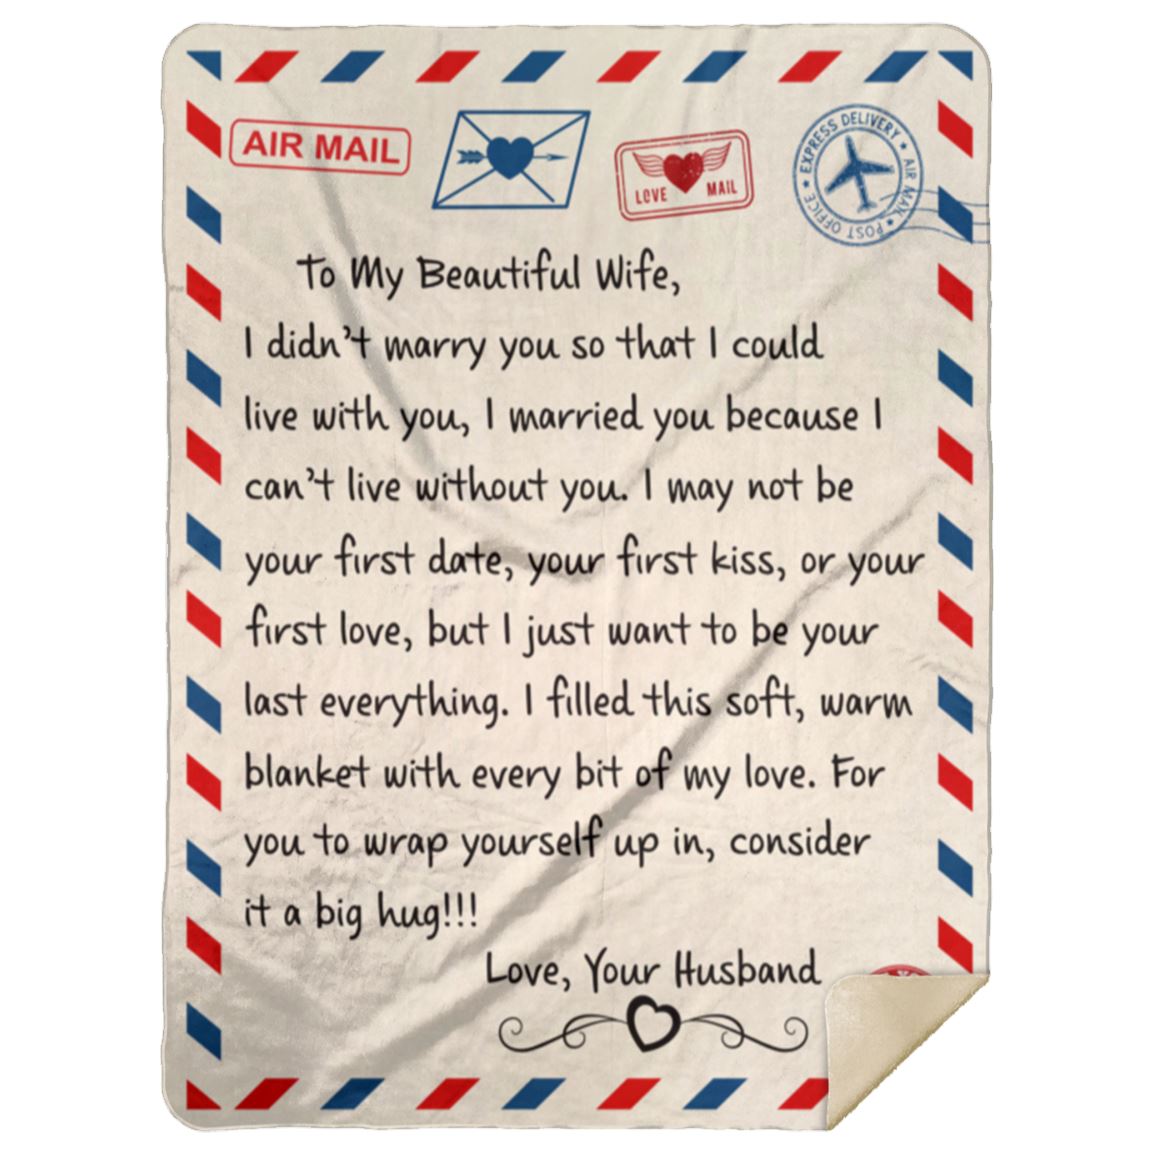 AIR MAIL
LOVE MAIL
EXPRESS DELIVERY ★ AIR MAIL ★ POST OFFICE ★
To My Beautiful Wife,
I didn't marry you so that I could
live with you, I married you because I
can't live without you. I may not be
your first date, your first kiss, or your
first love, but I just want to be your
last everything. I filled this soft, warm
blanket with every bit of my love. For
you to wrap yourself up in, consider
it a big hug!!!
Love, Your Husband